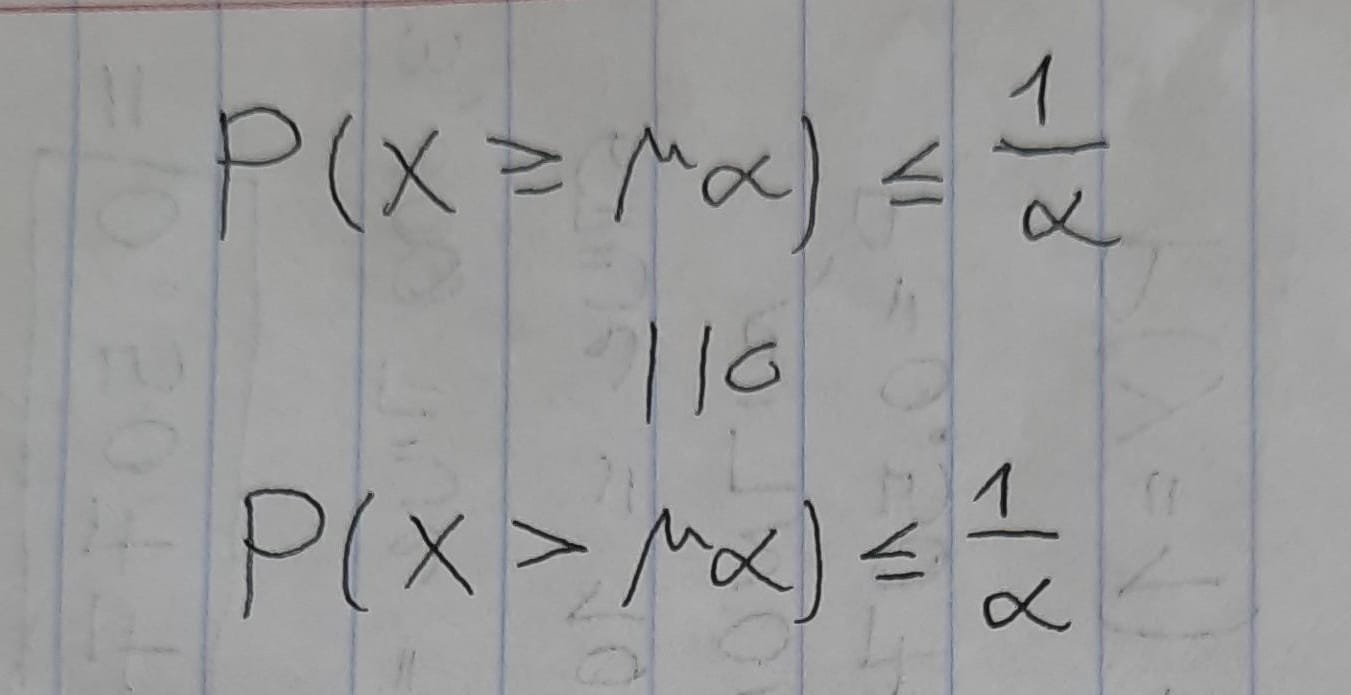 P(X ≥ μα) ≤ 1/α
P(X > μα) ≤ 1/α